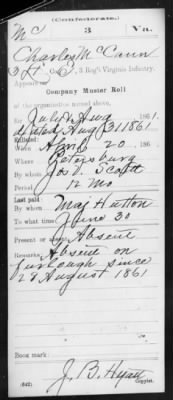 (Confederate.)
Mc 3 Va.
Charles McCann
Co. , 3 Reg't Virginia Infantry.
Appears on
Company Muster Roll
of the organization named above,
for July & Aug 1861.
dated Aug 31 1861
Enlisted:
When April 20, 186
Where Petersburg
By whom Jos. V. Scott
Period 12 Mo
Last paid:
By whom Maj Hutton
To what time June 30
Present or absent Absent
Remarks: Absent on
furlough since
28 August 1861
Book mark:
J. B. Hyatt
(642) Copyist.